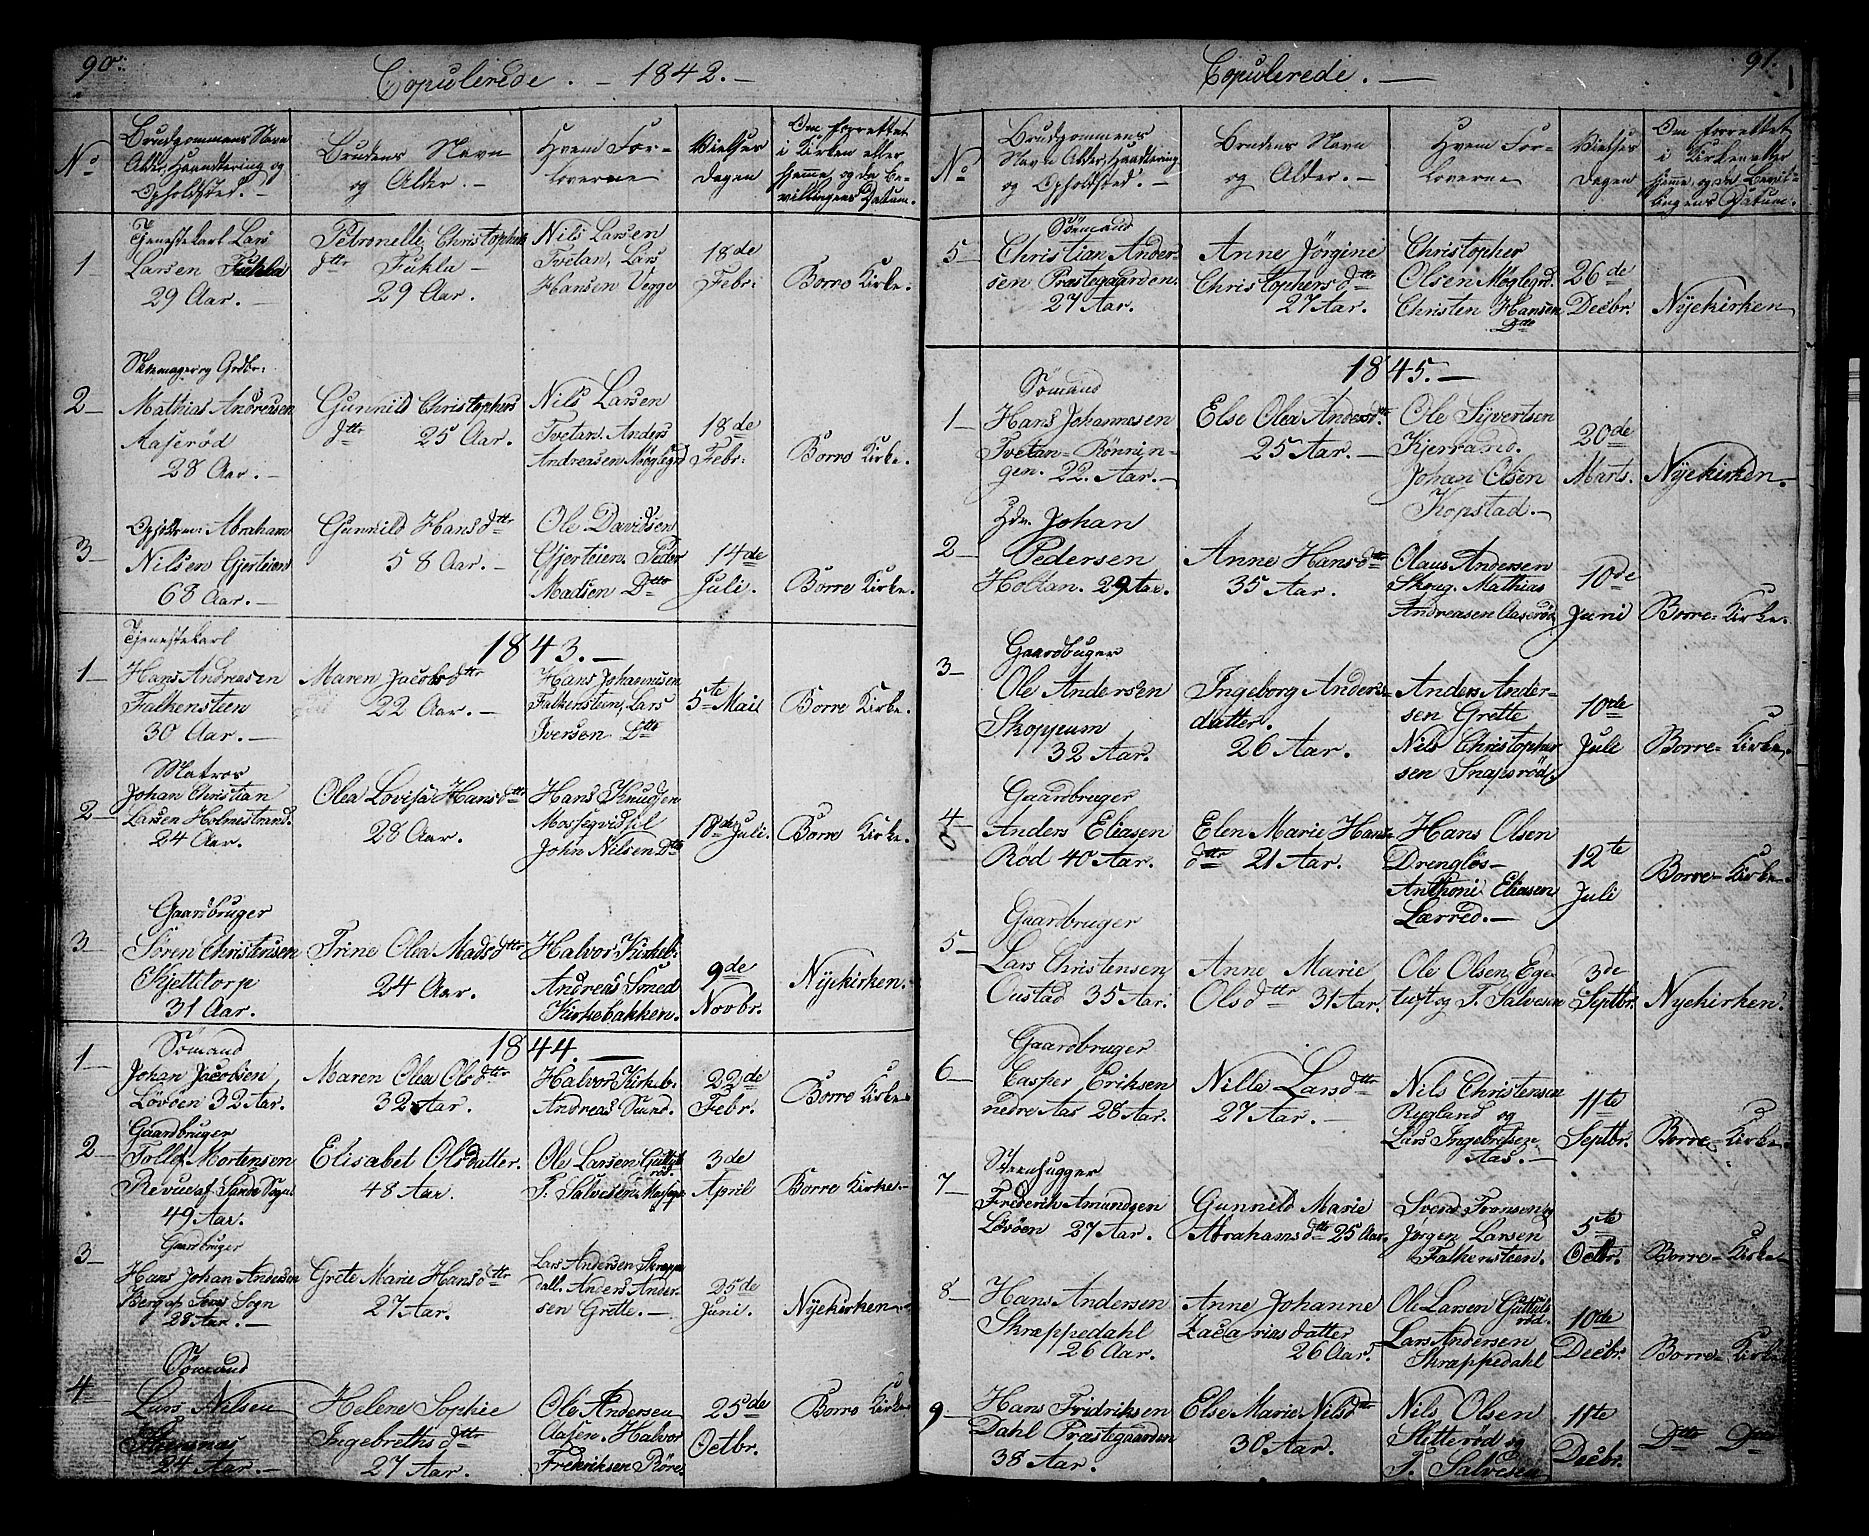 90.
Copulerede. - 1842. -
No
Brudgommens Navn
Alder, Haandtering og
Opholdsted. -
Brudens Navn
og Alder. -
Hvem For-
loverne
Vielses
Dagen
Om forrettet
i Kirken eller
hjemme, og da Be-
villingens Datum.
1
Tjenestekarl Lars
Larsen
29 Aar. -
Petronelle Christophers
dttr
29 Aar.
Nils Larsen
Tvetan, Lars
Hansen Verge
18de
Febr:
Borre Kirke.
2
Skomager og Grdbr:
Mathias Andreasen
Aaserød
28 Aar. -
Gunnild Christophers
dttr 25 Aar.
Nils Larsen
Tvetan. Anders
Andreasen Møglegrd
18de
Febr:
Borre Kirke.
3
Abraham
Nilsen Gjerteien
68 Aar. -
Gunnild Hansdttr
58 Aar. -
Ole Davidsen
Gjerteien. Peder
Madsen Dtto
14de
Juli.
Borre Kirke.
1843. -
1
Tjenestekarl
Hans Andreasen
Falkensteen
30 Aar. -
Maren Jacobsdttr
22 Aar. -
Hans Johannesen
Falkensteen, Lars
Iversen Dtto
5te Mai
Borre Kirke.
2
Matros
Johan Christian
Larsen Holmestrand.
24 Aar.
Olea Lovise Hansdttr
28 Aar.
Hans Knudsen
John Nilsen Dtto
18de Juli.
Borre Kirke.
3
Gaardbruger
Søren Christensen
Kjettitorp
31 Aar.
Trine Olea Madsdttr
24 Aar.
Halvor Kirkeb.
Andreas Smed
Kirkebakken.
9de
Novbr.
Nyekirken.
1844. -
1
Sømand
Johan Jacobsen
Løvøen 32 Aar.
Maren Olea Olsdttr
32 Aar.
Halvor Kirkeb.
Andreas Smed.
22de
Febr.
Borre Kirke
2
Gaardbruger
Tollef Mortensen
Revue af Sande Sogn
49 Aar.
Elisabet Olsdatter.
48 Aar.
Ole Larsen Gullik
rød.
T. Salvesen
3de
April
Borre Kirke
3
Gaardbruger
Hans Johan Andersen
Berg af Sogn
28 Aar. -
Grete Marie Hansdttr
27 Aar.
Lars Andersen Skrappe
dall. Anders Ander-
sen Grette. -
25de
Juni.
Nyekirken
4
Sømand
Lars Nilsen
24 Aar. -
Helene Sophie
Ingebrethsdttr
27 Aar.
Ole Andersen
Halvor
Fredriksen Røre.
25de
Octbr.
Borre Kirke
91.
Copulerede. -
No
Brudgommens
Navn Alder, Haandtering
og Opholdsted. -
Brudens Navn
og Alder. -
Hvem For-
loverne
Vielses
Dagen
Om forrettet
i Kirken eller
hjemme, og da Bevil-
lingens Datum.
5
Sømand
Christian Ander-
sen Præstegaarden.
27 Aar.
Anne Jörgine
Christophersdtr
27 Aar.
Christopher
Olsen Møglegrd.
Christen Hansen
Dito
26de
Decbr.
Nyekirken
1845. -
1
Sømand
Hans Johannesen
Tvetan-Rönnin-
gen. 22 Aar. -
Else Olea Andersdtr
25 Aar. -
Ole Syvertsen
Kjerrand.
Johan Olsen
Kopstad. -
20de
Marts.
Nyekirken.
2
Johan
Pedersen
Holtan. 29 Aar.
Anne Hansdtr
35 Aar.
Olaus Andersen
Skoug. Mathias
Andreasen Aaserød
10de
Juni
Borre-Kirke.
3
Gaardbruger
Ole Andersen
Skoppum
32 Aar.
Ingeborg Anders-
datter.
26 Aar.
Anders Ander-
sen Grette
Nils Christopher
sen Snapsrød.
10de
Juli
Borre-Kirke.
4
Gaardbruger
Anders Eliasen
Rød 40 Aar.
Elen Marie Hans-
dttr 21 Aar.
Hans Olsen
Anthoni Eliasen
Lærred. -
12te
Juli
Borre-Kirke.
5
Gaardbruger
Lars Christensen
Oustad 35 Aar.
Anne Marie
Olsdttr 31 Aar.
Ole Olsen Ege-
tuft og T. Salvesen
3de
Septbr.
Nyekirken.
6
Gaardbruger
Casper Eriksen
nedre Aas 28 Aar.
Nille Larsdttr
27 Aar.
Nils Christensen
Rygland og
Lars Ingebretsen
Aas. -
11te
Septbr.
Borre-Kirke
7
Steenhugger
Frederik Amundsen
Løvøen 27 Aar.
Gunnild Marie
Abrahamsdttr 25 Aar.
Svend Fransen og
Jörgen Larsen
Falkensteen.
5te
Octbr.
Borre-Kirke
8
Hans Andersen
Skræppedahl
26 Aar.
Anne Johanne
Zacariasdatter
26 Aar.
Ole Larsen Gullik
rød.
Lars Andersen
Skræppedahl
10de
Decbr.
Borre-Kirke
9
Hans Fredriksen
Dahl Præstegaarden
38 Aar.
Else Marie Nilsdttr
30 Aar.
Nils Olsen
Sletterød og
T. Salvesen
11te
Decbr.
Dtto Dtto